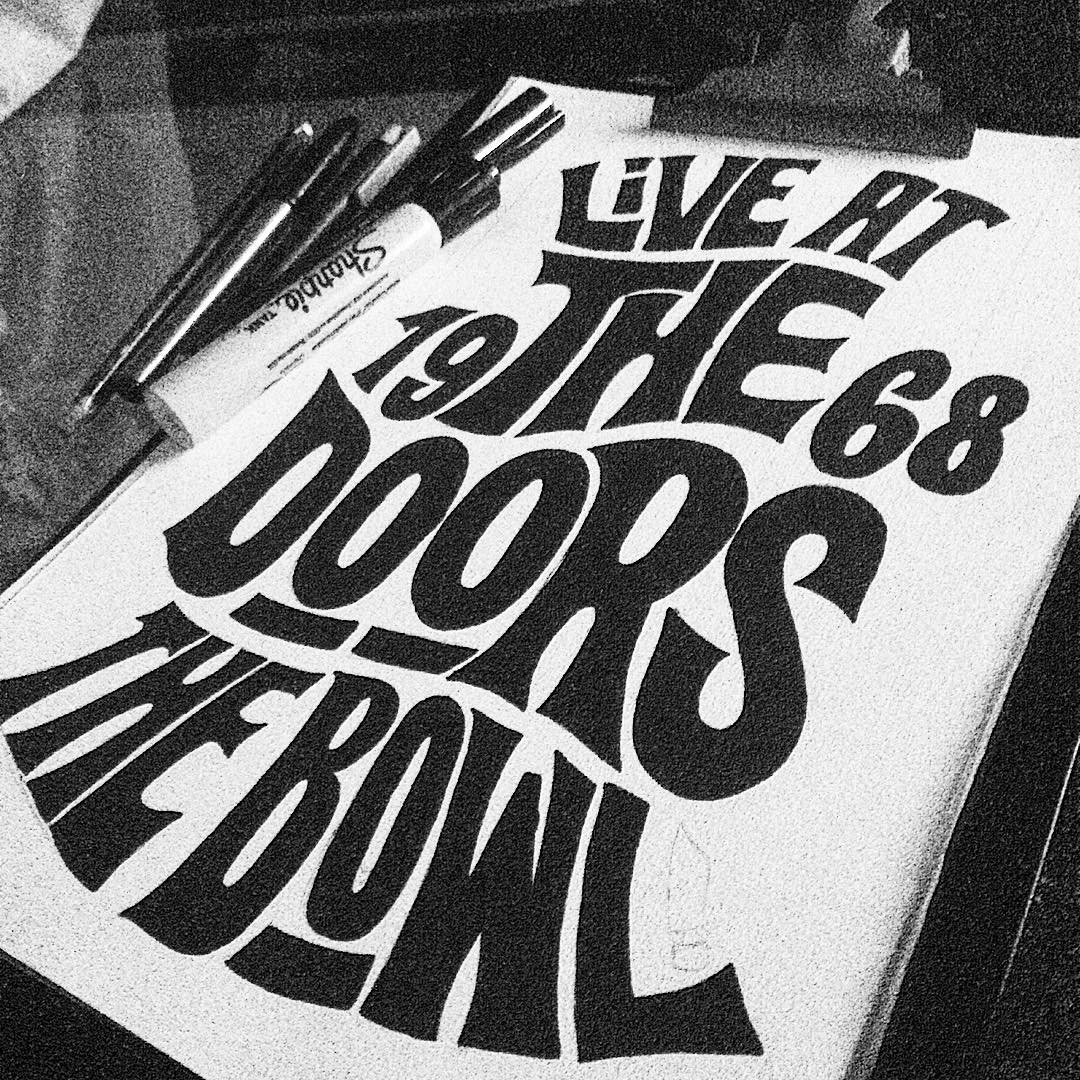 LiVE AT
19 THE 68
DOORS
THE BOWL
Sharpie
TANK